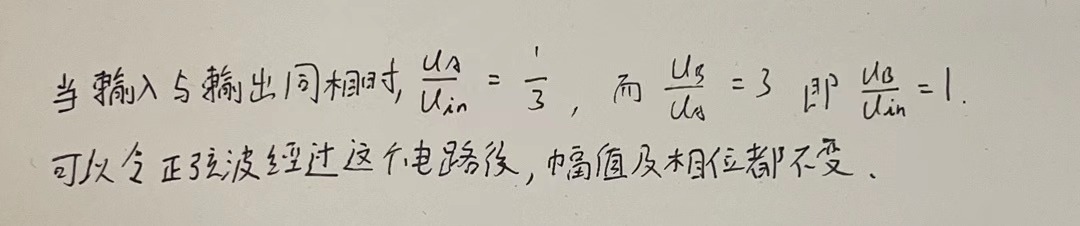 当输入与输出同相时, U_A/U_in = 1/3, 而 U_B/U_A = 3 即 U_B/U_in = 1.
可以令正弦波经过这个电路後, 幅值及相位都不变.